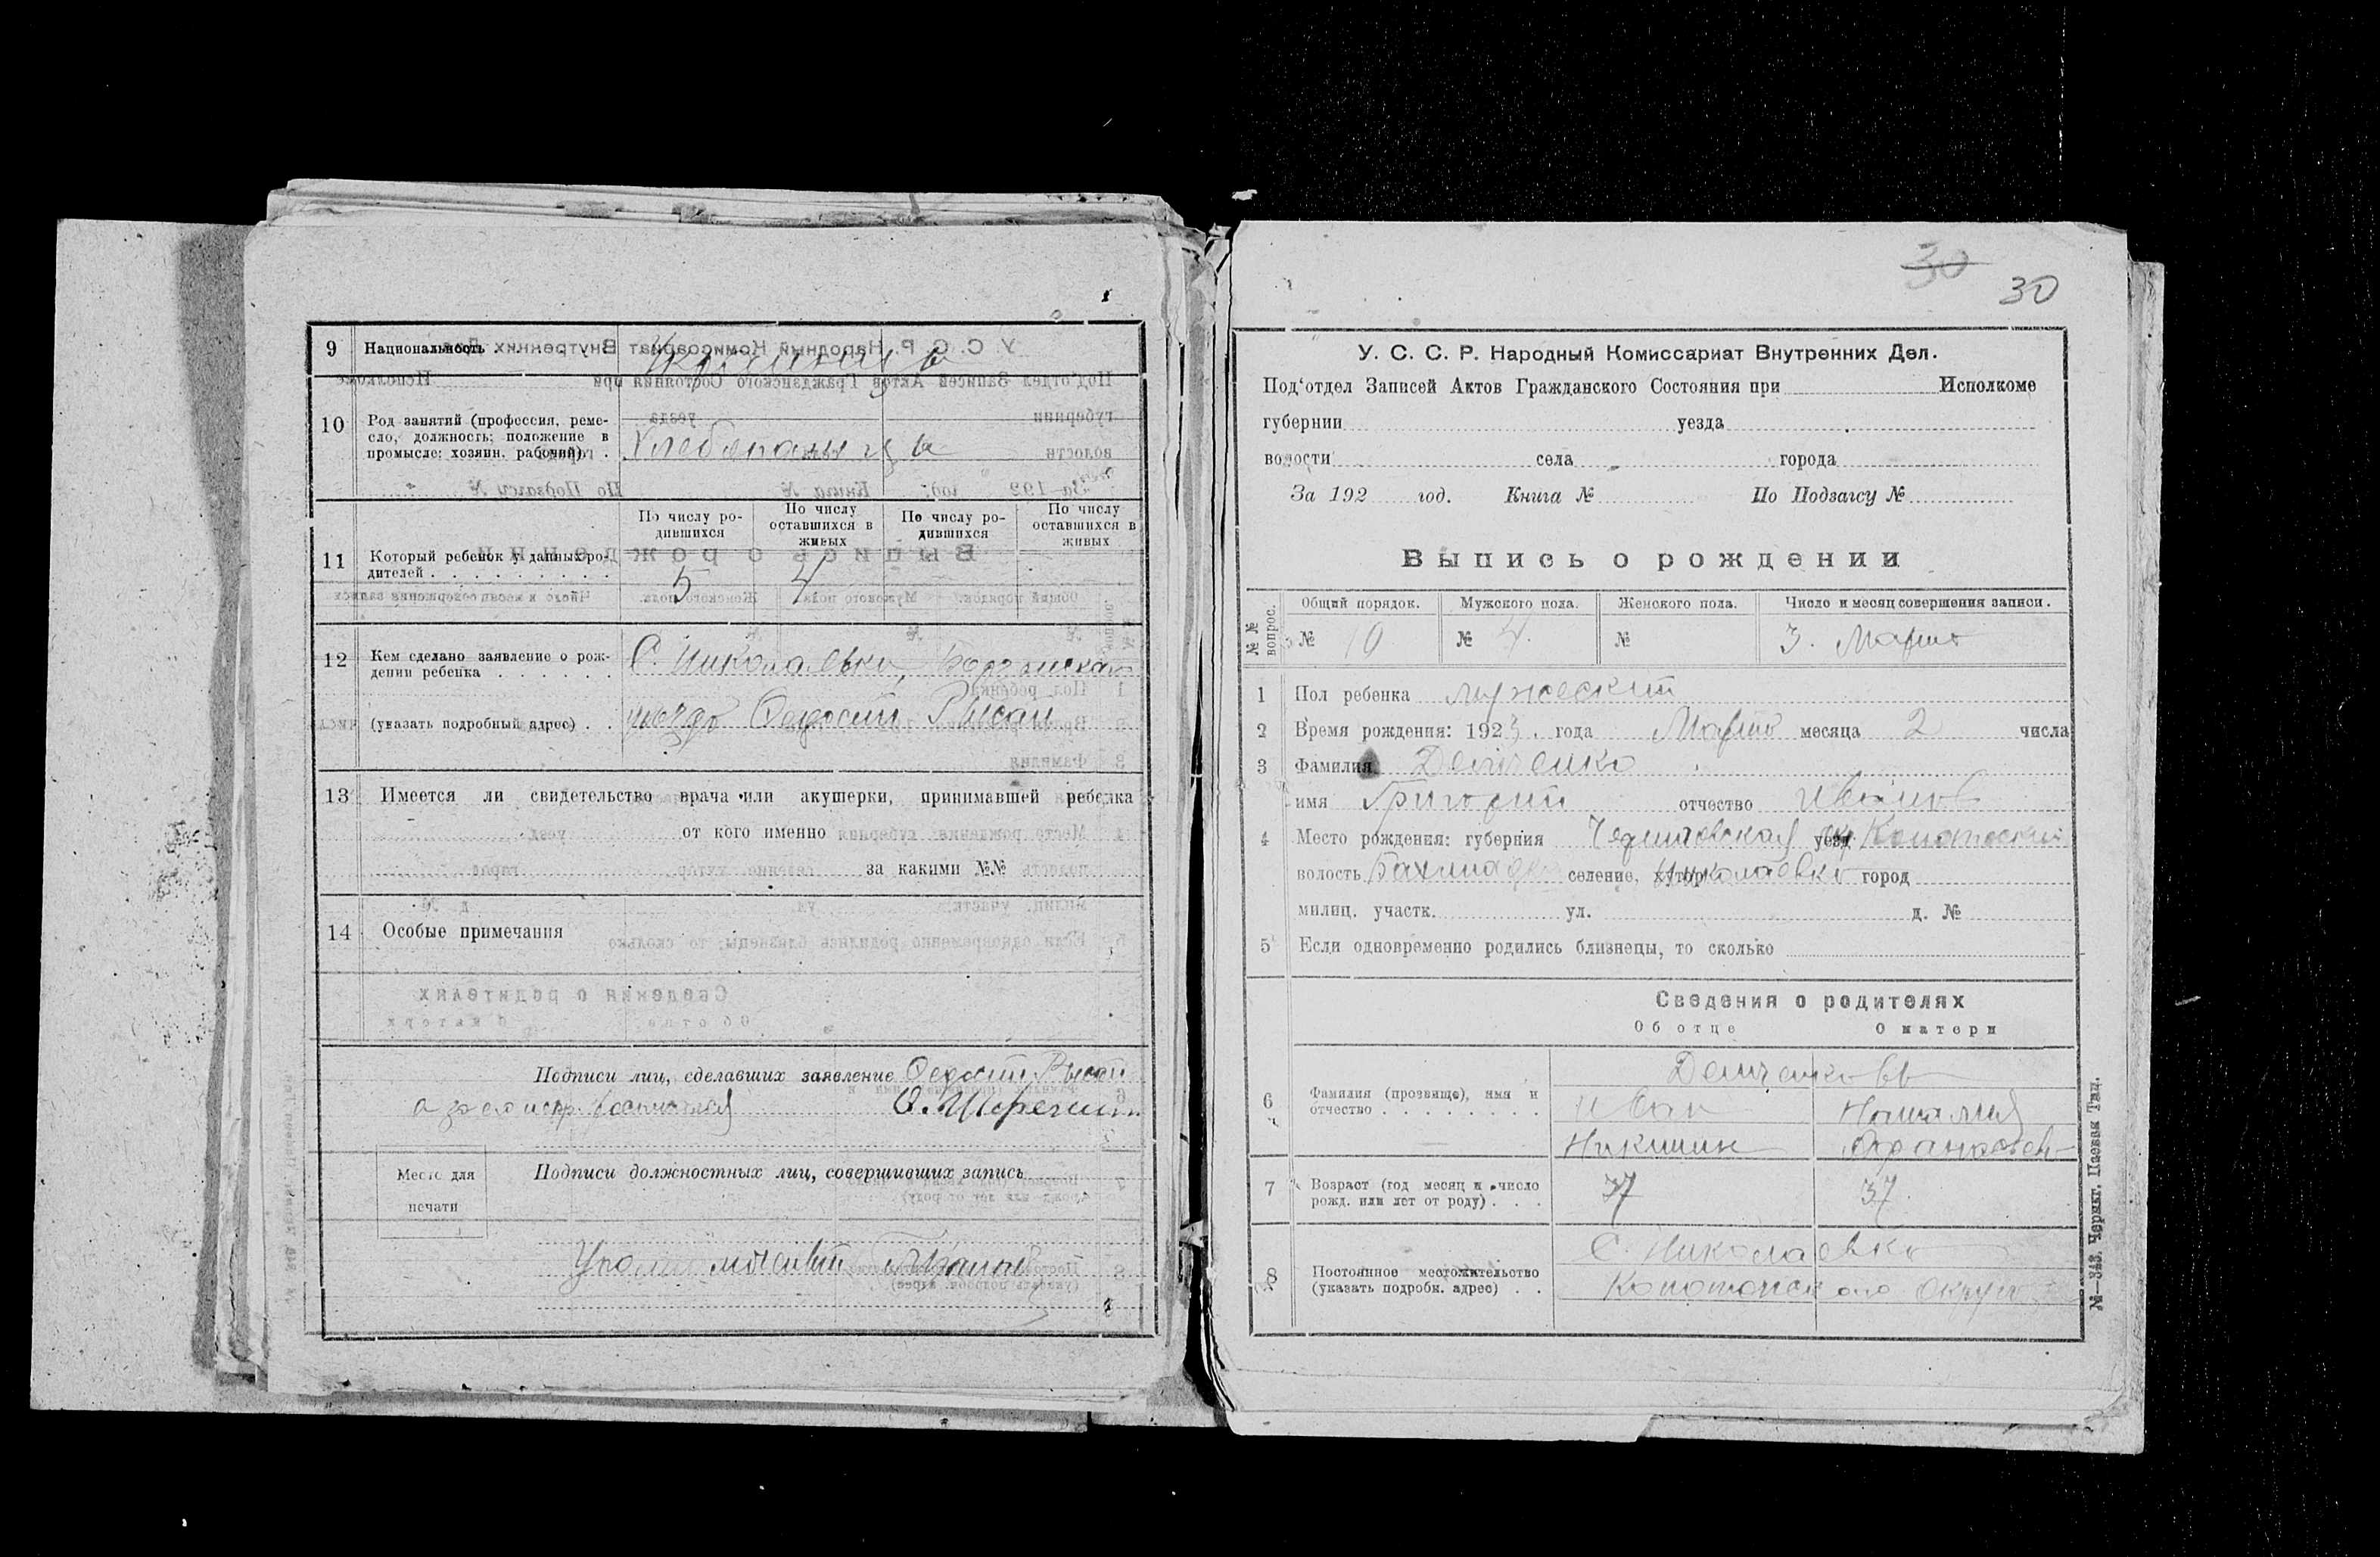 9 Национальность Украинцы
10 Род занятий (профессия, реме-
сло, должность; положение в
промысле: хозяин. рабочий) . Хлебопашцы
По числу ро-
дившихся
По числу
оставшихся в
живых
По числу ро-
дившихся
По числу
оставшихся в
живых
11 Который ребенок у данных ро-
дителей . . . . . . . . . 5 4
12 Кем сделано заявление о рож-
дении ребенка . . . . . . С. Николаевка,
(указать подробный адрес) . . Федосий Рысай
13 Имеется ли свидетельство врача или акушерки, принимавшей ребенка
от кого именно
за какими №№
14 Особые примечания
Подписи лиц, сделавших заявление Федосий Рысай
Подписи должностных лиц, совершивших запись
Место для
печати
30
30
У. С. С. Р. Народный Комиссариат Внутренних Дел.
Под'отдел Записей Актов Гражданского Состояния при Исполкоме
губернии уезда
волости села города
За 192 год. Книга № По Подзагсу №
Выпись о рождении
№ № вопрос.
Общий порядок. Мужского пола. Женского пола. Число и месяц совершения записи.
№ № 4. № 3. Марта
1 Пол ребенка мужеский
2 Время рождения: 1923. года Марта месяца 2 числа
3 Фамилия Демченко
имя Григорий отчество Иванов
4 Место рождения: губерния Черниговская уезд Конотопский
волость селение, хутор Николаевка город
милиц. участк. ул. д. №
5 Если одновременно родились близнецы, то сколько
Сведения о родителях
Об отце О матери
6 Фамилия (прозвище), имя и
отчество . . . . . . . . . Демченковы
Иван Наталия
Никитин
7 Возраст (год месяц и число
рожд. или лет от роду) . . . 37 37
8 Постоянное местожительство
(указать подробн. адрес) . . С. Николаевка
Конотопского Округа
№—343. Черниг. Паевая Тип.